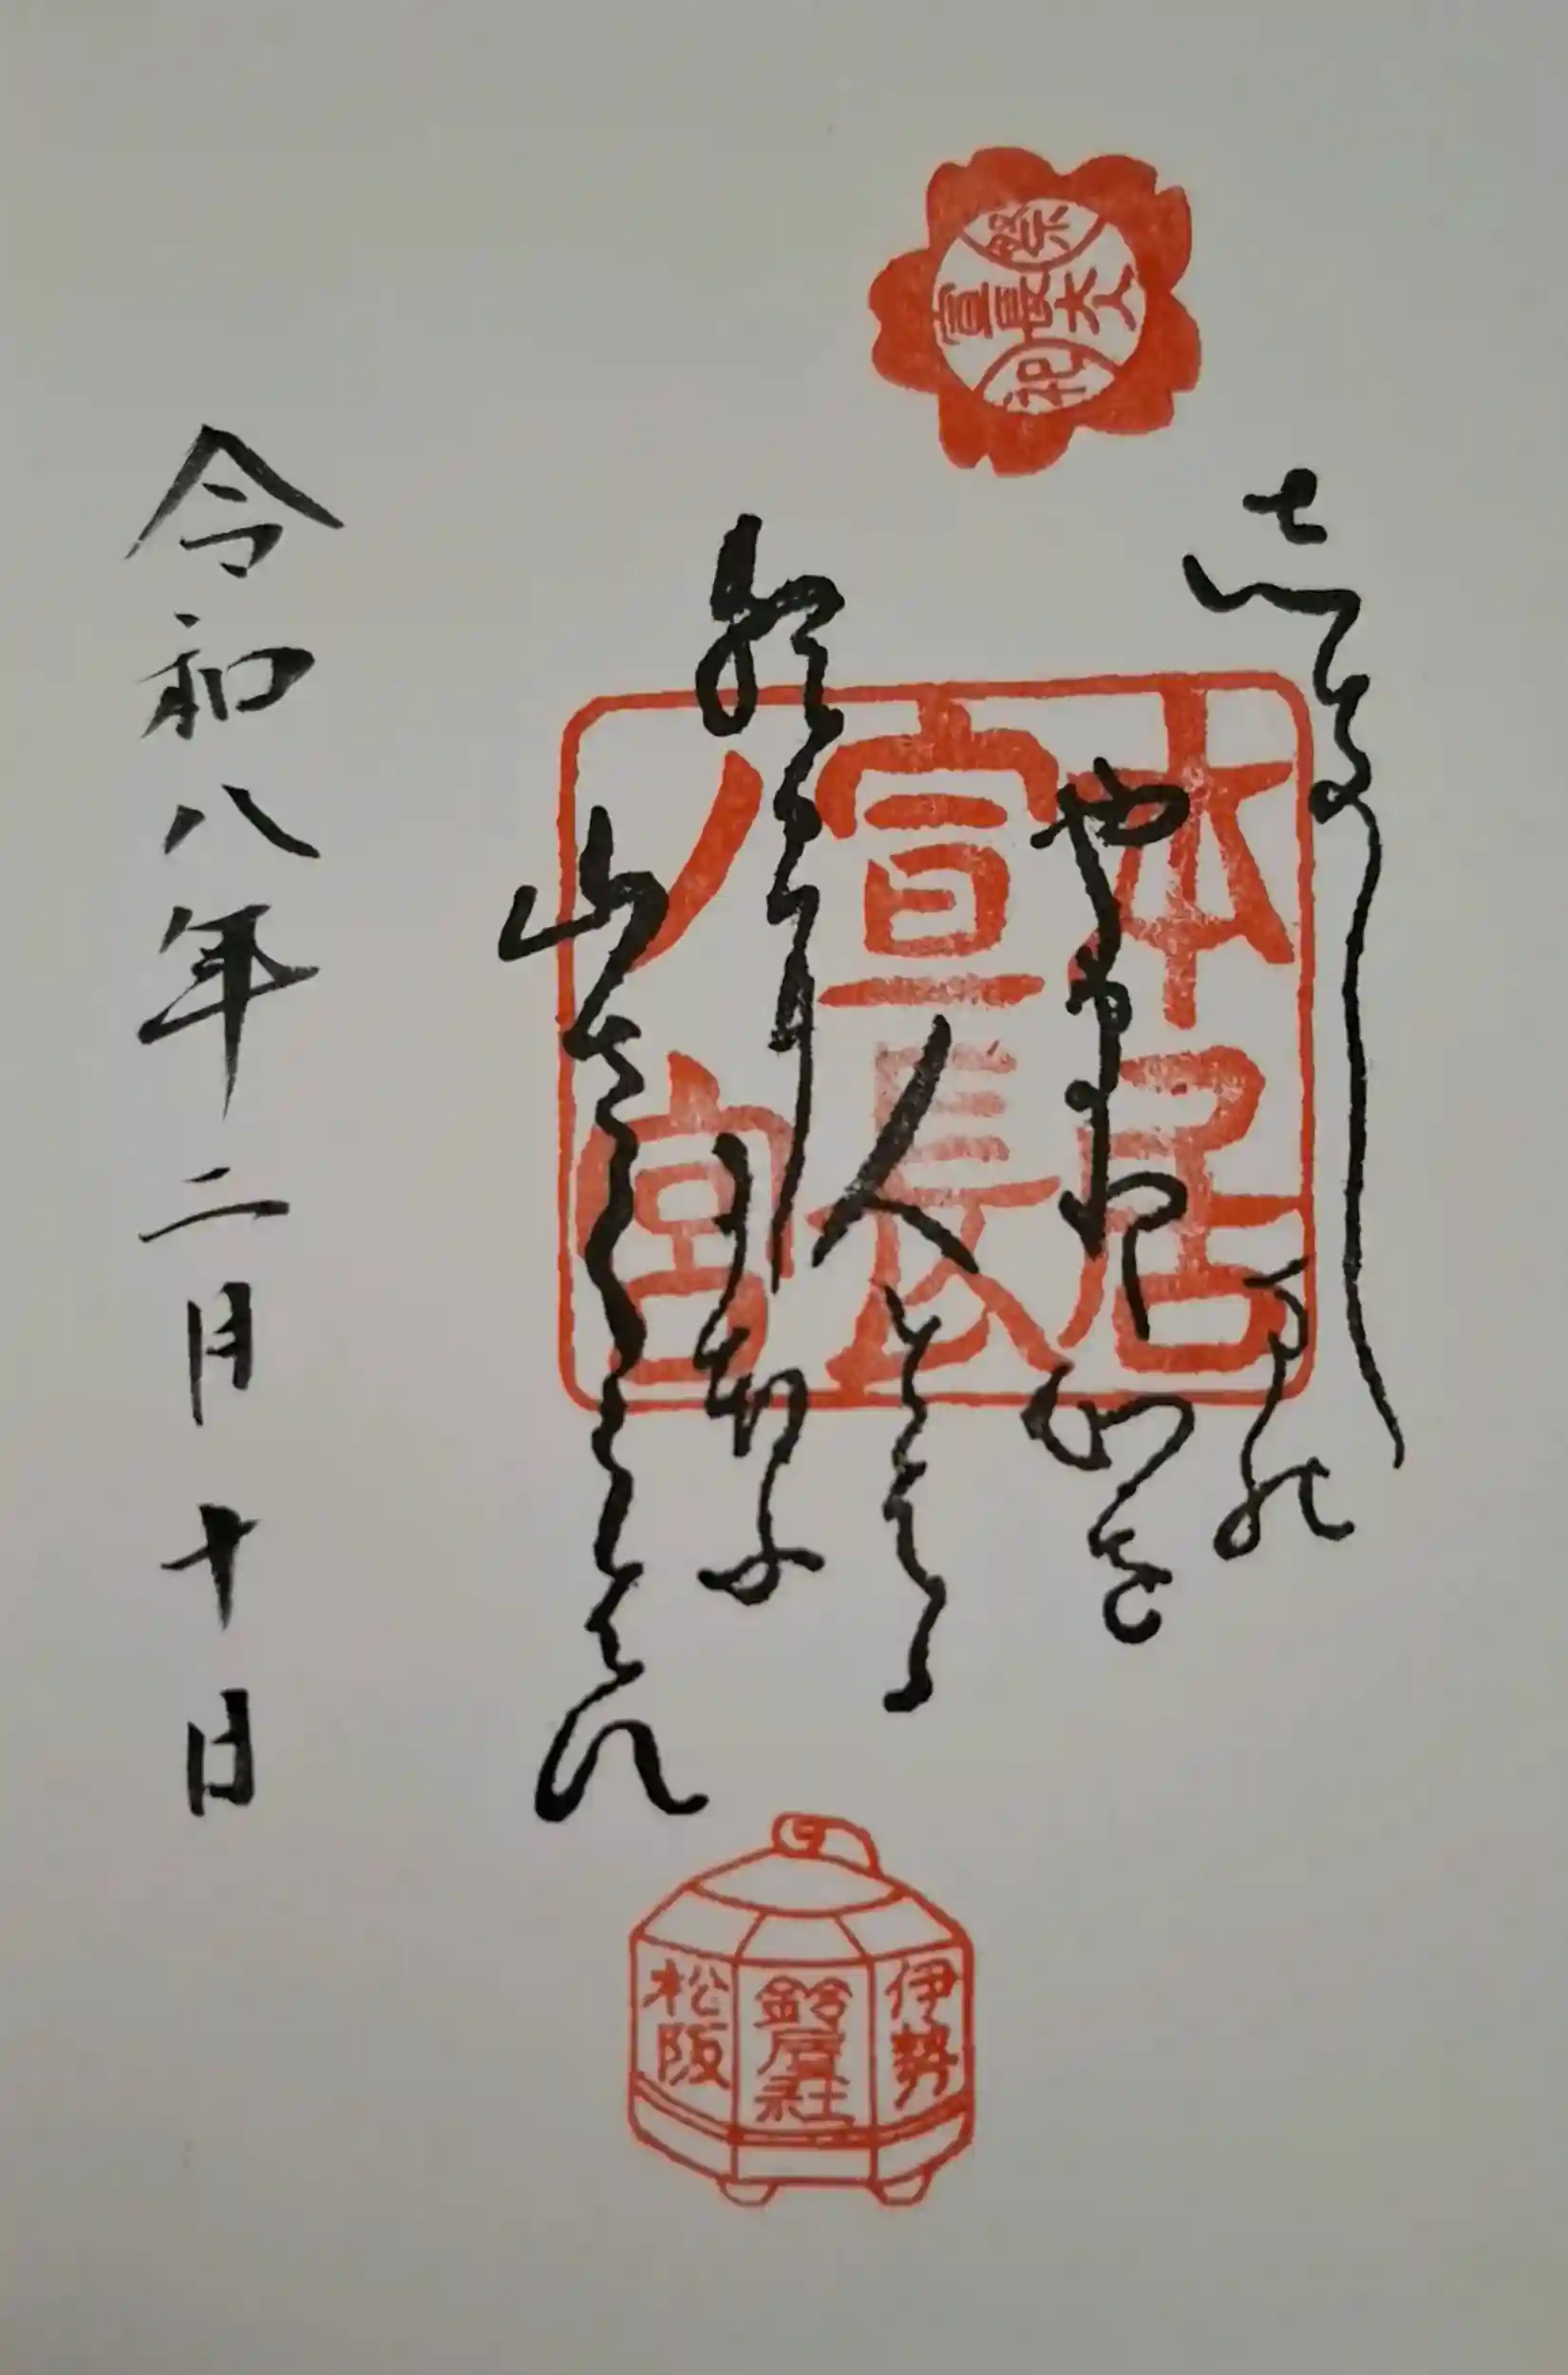 宣長大人
志きしまの
やまと心を
人とはゝ
朝日にゝほふ
山さくらはな
本居
宣長
ノ宮
令和八年二月十日
伊勢
鈴屋社
松阪